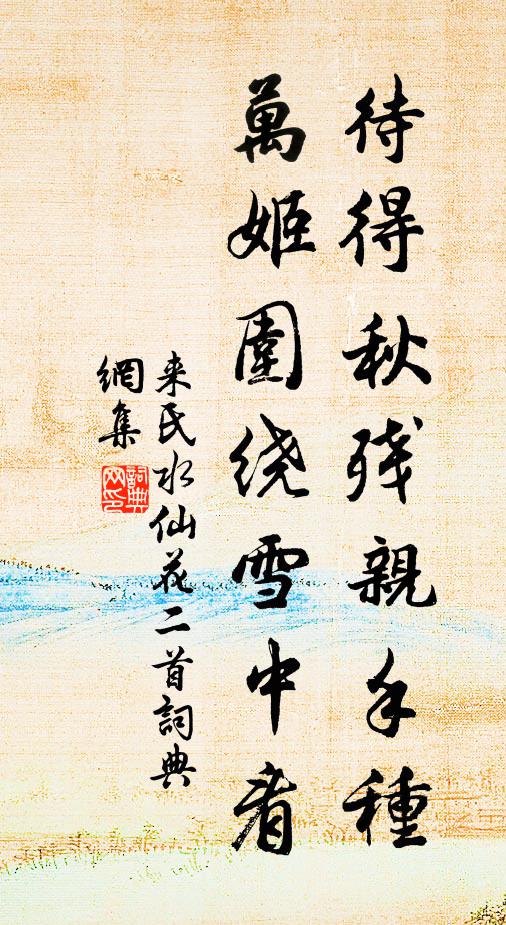 待得秋残親手種
萬姬圍绕雪中看
来氏水仙花二首詞典
網集
詞典
网